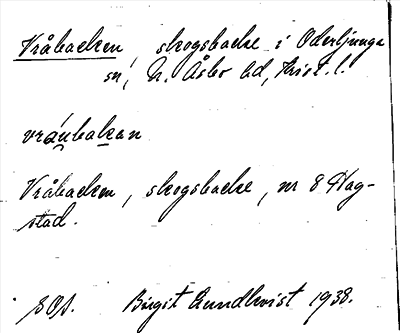 Vråbacken, skogsbacke i Oderljunga
sn, N. Åsbo hd, Krist. l.
vráubakan
Vråbacken, skogsbacke, nr 8 Hag-
stad.
Birgit Lundkvist 1938.